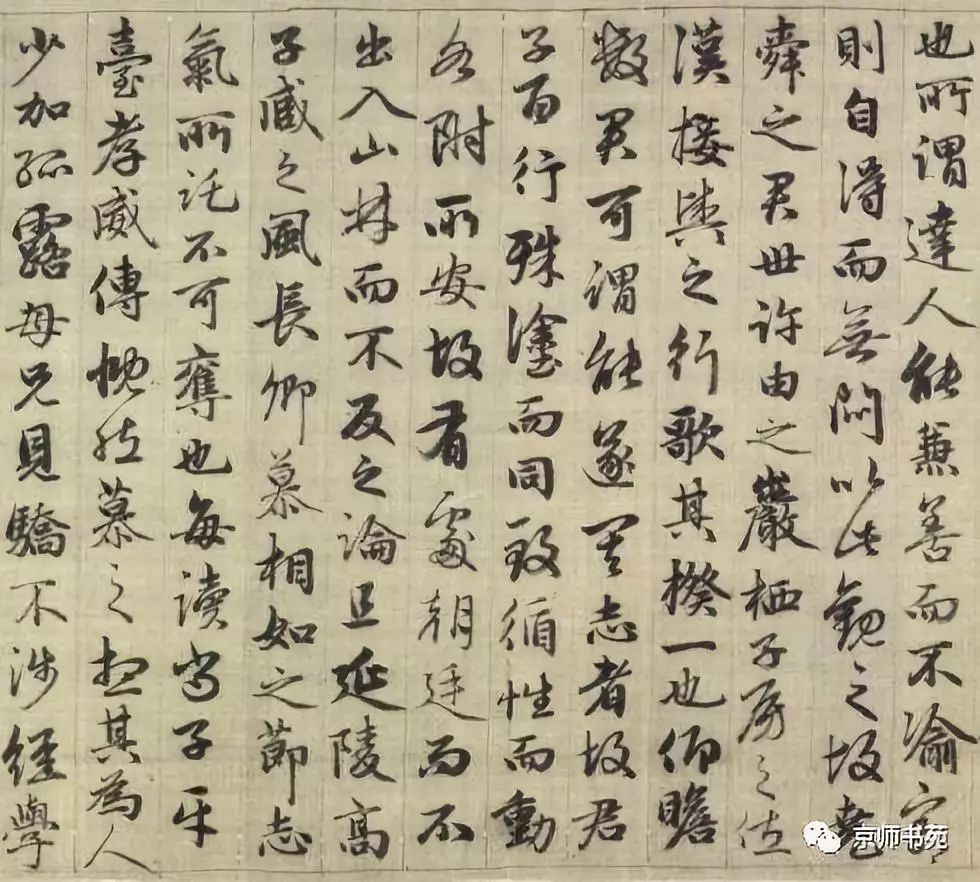 也所謂達人能兼善而不渝窮
則自得而無悶以此觀之故堯
舜之君世許由之巖栖子房之佐
漢接輿之行歌其揆一也仰瞻
數君可謂能遂其志者故君
子百行殊塗而同致循性而動
各附所安故有處朝廷而不
出入山林而不反之論且延陵高
子臧之風長卿慕相如之節志
氣所託不可奪也每讀尚子平
臺孝威傳慨然慕之想其為人
少加孤露母兄見驕不涉經學
京师书苑